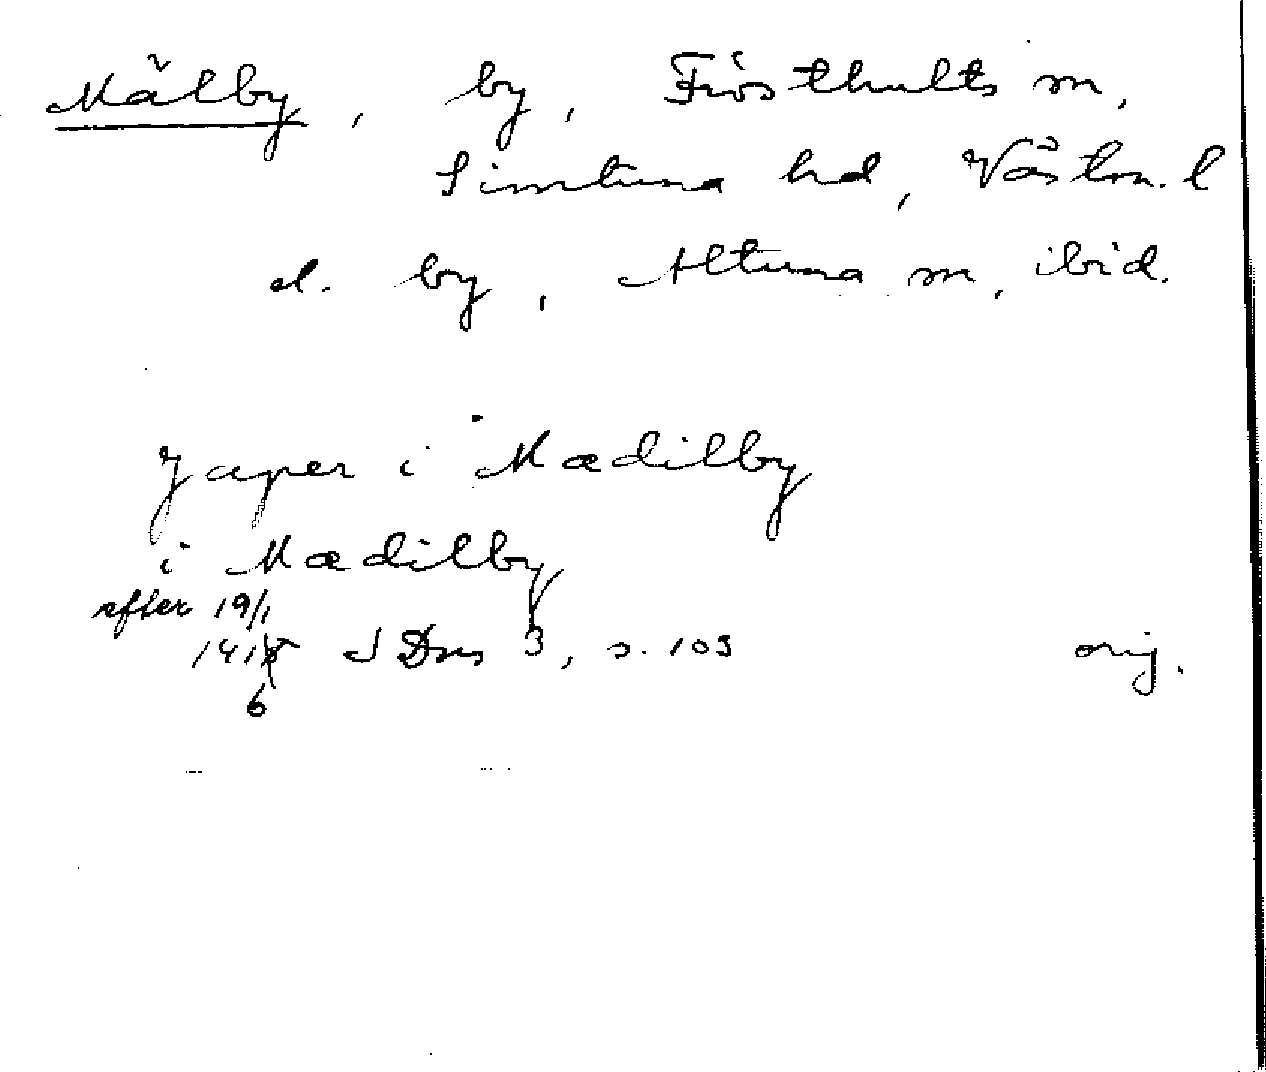 Mälby, by, Frösthults sn,
Simtuna hd, Västm. l
el. by, Altuna sn, ibid.
Japer i Mædilby
i Mædilby
efter 19/1
1415 SDns 3, s. 103 orig.
6